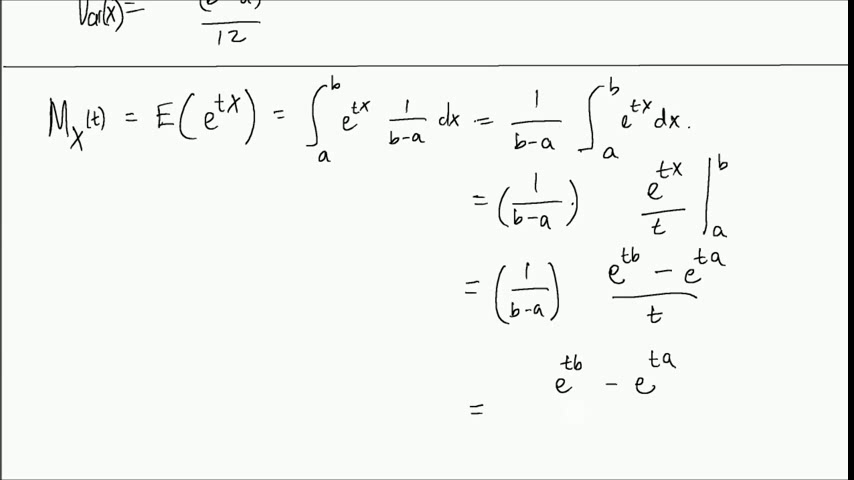 Var(X) =
12
M_X(t) = E(e^{tX}) = ∫_a^b e^{tx} 1/(b-a) dx = 1/(b-a) ∫_a^b e^{tx} dx.
= (1/(b-a) ·) e^{tx}/t |_a^b
= (1/(b-a)) (e^{tb} - e^{ta})/t
= e^{tb} - e^{ta}